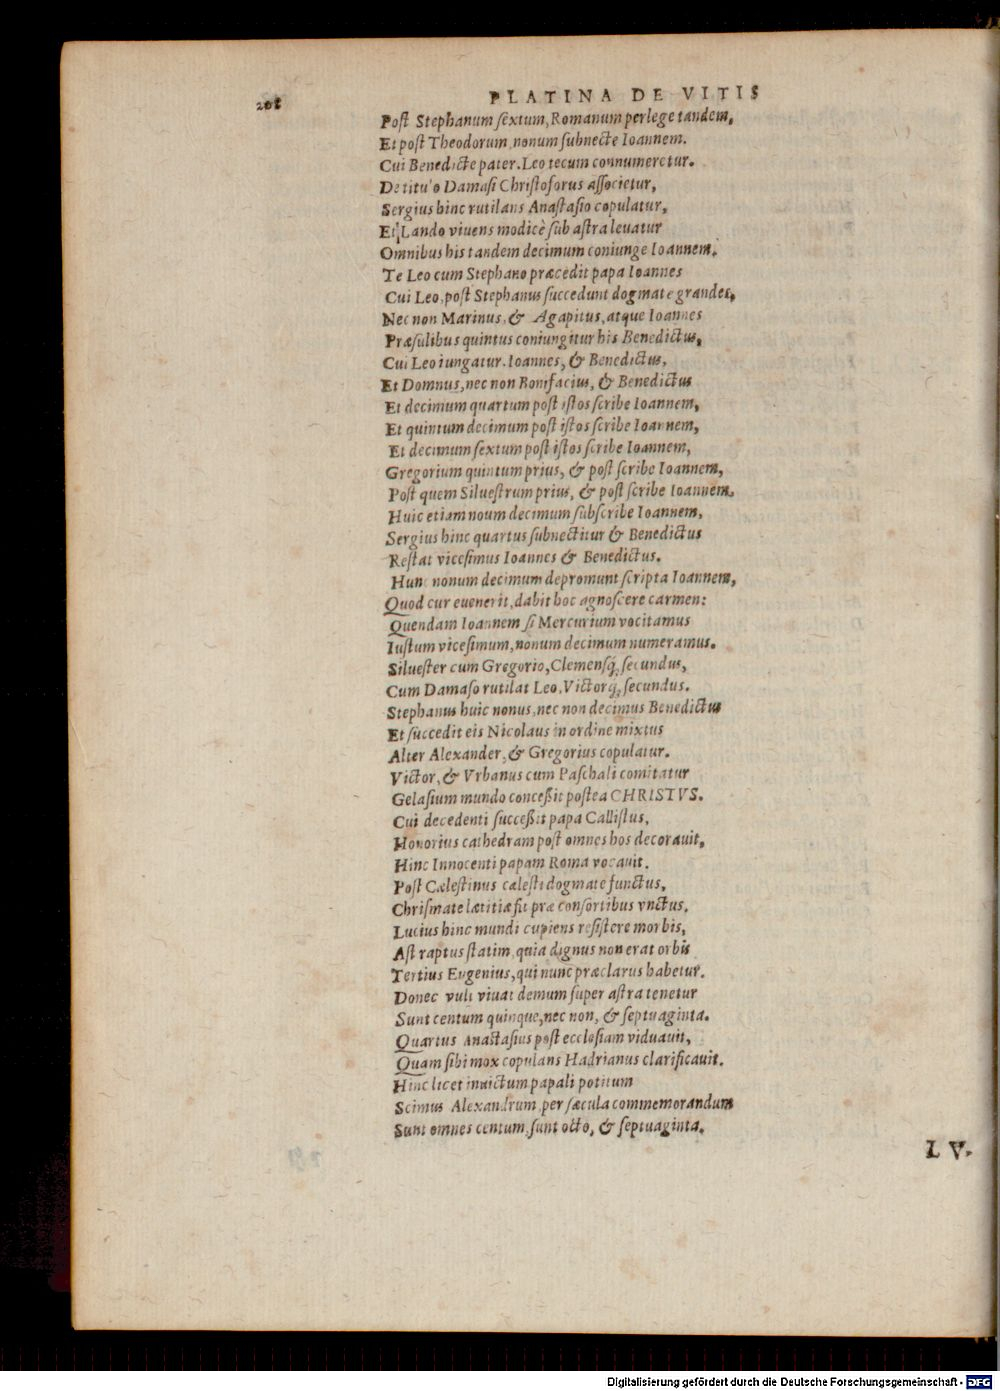 208 PLATINA DE VITIS
Poſt Stephanum ſextum, Romanum perlege tandem,
Et poſt Theodorum, nonum ſubnecte Ioannem.
Cui Benedicte pater. Leo tecum connumeretur.
De titulo Damaſi Chriſtoforus aſſocietur,
Sergius hinc rutilans Anaſtaſio copulatur,
Et Lando viuens modicè ſub aſtra leuatur
Omnibus his tandem decimum coniunge Ioannem.
Te Leo cum Stephano præcedit papa Ioannes
Cui Leo, poſt Stephanus ſuccedunt dogmate grandes,
Nec non Marinus, & Agapitus, atque Ioannes
Præſulibus quintus coniungitur his Benedictus,
Cui Leo iungatur. Ioannes, & Benedictus,
Et Domnus, nec non Bonifacius, & Benedictus
Et decimum quartum poſt iſtos ſcribe Ioannem,
Et quintum decimum poſt iſtos ſcribe Ioannem,
Et decimum ſextum poſt iſtos ſcribe Ioannem,
Gregorium quintum prius, & poſt ſcribe Ioannem,
Poſt quem Silueſtrum prius, & poſt ſcribe Ioannem.
Huic etiam noum decimum ſubſcribe Ioannem,
Sergius hinc quartus ſubnectitur & Benedictus
Reſtat viceſimus Ioannes & Benedictus.
Hunc nonum decimum depromunt ſcripta Ioannem,
Quod cur euenerit, dabit hoc agnoſcere carmen:
Quendam Ioannem ſi Mercurium vocitamus
Iuſtum viceſimum, nonum decimum numeramus.
Silueſter cum Gregorio, Clemenſq́; ſecundus,
Cum Damaſo rutilat Leo, Victorq́; ſecundus.
Stephanus huic nonus, nec non decimus Benedictus
Et ſuccedit eis Nicolaus in ordine mixtus
Alter Alexander, & Gregorius copulatur.
Victor, & Vrbanus cum Paſchali comitatur
Gelaſium mundo conceßit poſtea CHRISTVS.
Cui decedenti ſucceßit papa Calliſtus,
Honorius cathedram poſt omnes hos decorauit,
Hinc Innocenti papam Roma vocauit.
Poſt Cæleſtinus cæleſti dogmate functus,
Chriſmate lætitiæ ſit præ conſortibus vnctus,
Lucius hinc mundi cupiens reſiſtere morbis,
Aſt raptus ſtatim, quia dignus non erat orbis
Tertius Eugenius, qui nunc præclarus habetur.
Donec vult viuat demum ſuper aſtra tenetur
Sunt centum quinque, nec non, & ſeptuaginta.
Quartus Anaſtaſius poſt eccleſiam viduauit,
Quam ſibi mox copulans Hadrianus clarificauit.
Hinc licet inuictum papali potitum
Scimus Alexandrum, per ſæcula commemorandum
Sunt omnes centum, ſunt octo, & ſeptuaginta.
LV.
Digitalisierung gefördert durch die Deutsche Forschungsgemeinschaft - DFG